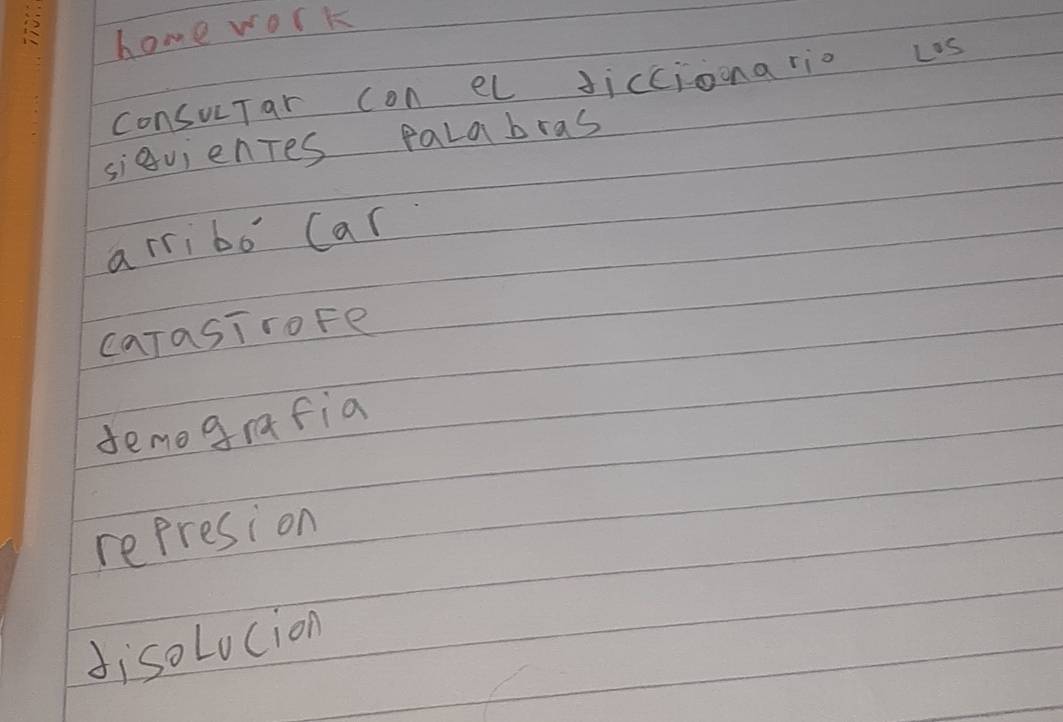 home work
consultar con el diccioonario Los
siguientes palabras
arribó car
catastrofe
demografia
represion
disolucion